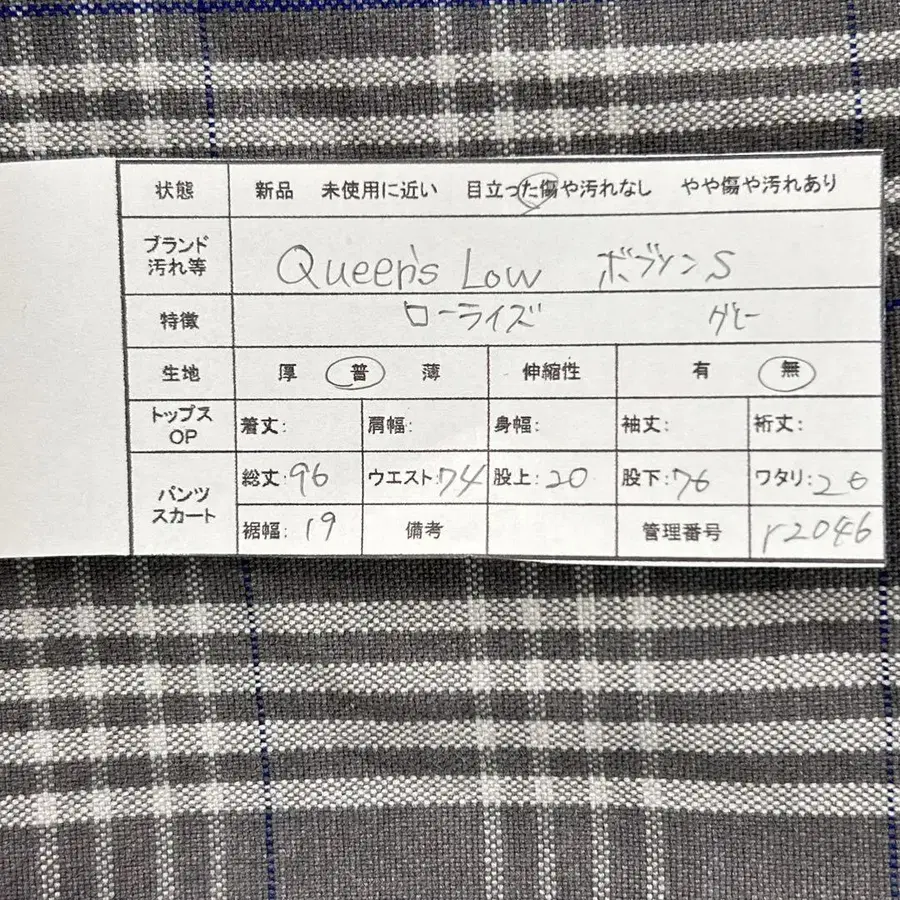 状態 新品 未使用に近い 目立った傷や汚れなし やや傷や汚れあり
ブランド
汚れ等 Queen's Low ボブソン S
特徴 ローライズ グレー
生地 厚 普 薄 伸縮性 有 無
トップス
OP 着丈: 肩幅: 身幅: 袖丈: 裄丈:
パンツ
スカート 総丈:96 ウエスト:74 股上:20 股下:76 ワタリ:26
裾幅:19 備考 管理番号 r2046